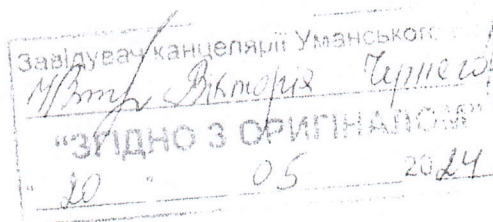 Завідувач канцелярії Уманського
Вікторія
“ЗГІДНО З ОРИГІНАЛОМ”
“ 20 ” 05 2024